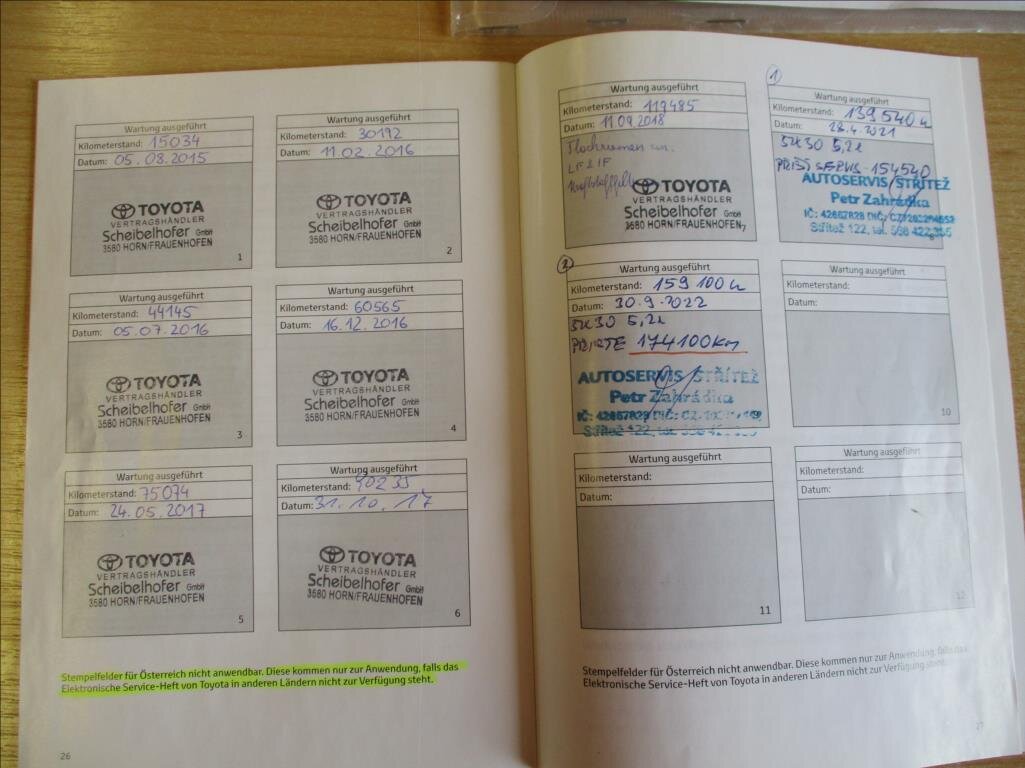 Wartung ausgeführt
Kilometerstand: 15034
Datum: 05.08.2015
TOYOTA
VERTRAGSHÄNDLER
Scheibelhofer GmbH
3580 HORN/FRAUENHOFEN
1
Wartung ausgeführt
Kilometerstand: 30192
Datum: 11.02.2016
TOYOTA
VERTRAGSHÄNDLER
Scheibelhofer GmbH
3580 HORN/FRAUENHOFEN
2
Wartung ausgeführt
Kilometerstand: 44145
Datum: 05.07.2016
TOYOTA
VERTRAGSHÄNDLER
Scheibelhofer GmbH
3580 HORN/FRAUENHOFEN
3
Wartung ausgeführt
Kilometerstand: 60565
Datum: 16.12.2016
TOYOTA
VERTRAGSHÄNDLER
Scheibelhofer GmbH
3580 HORN/FRAUENHOFEN
4
Wartung ausgeführt
Kilometerstand: 75074
Datum: 24.05.2017
TOYOTA
VERTRAGSHÄNDLER
Scheibelhofer GmbH
3580 HORN/FRAUENHOFEN
5
Wartung ausgeführt
Kilometerstand: 90235
Datum: 31.10.17
TOYOTA
VERTRAGSHÄNDLER
Scheibelhofer GmbH
3580 HORN/FRAUENHOFEN
6
Stempelfelder für Österreich nicht anwendbar. Diese kommen nur zur Anwendung, falls das
Elektronische Service-Heft von Toyota in anderen Ländern nicht zur Verfügung steht.
26
Wartung ausgeführt
Kilometerstand: 119485
Datum: 11.09.2018
TOYOTA
VERTRAGSHÄNDLER
Scheibelhofer GmbH
3580 HORN/FRAUENHOFEN
7
1
Wartung ausgeführt
Kilometerstand: 139540
Datum: 28.4.2021
5W30 5,2l
SERVIS - 154540
AUTOSERVIS STŘÍTEŽ
Petr Zahrádka
Střítež 122, tel.
8
2
Wartung ausgeführt
Kilometerstand: 159100
Datum: 30.9.2022
5W30 5,2l
PŘÍŠTE 174100km
AUTOSERVIS STŘÍTEŽ
Petr Zahrádka
Střítež 122, tel.
Wartung ausgeführt
Kilometerstand:
Datum:
10
Wartung ausgeführt
Kilometerstand:
Datum:
11
Wartung ausgeführt
Kilometerstand:
Datum:
12
Stempelfelder für Österreich nicht anwendbar. Diese kommen nur zur Anwendung, falls das
Elektronische Service-Heft von Toyota in anderen Ländern nicht zur Verfügung steht.
27